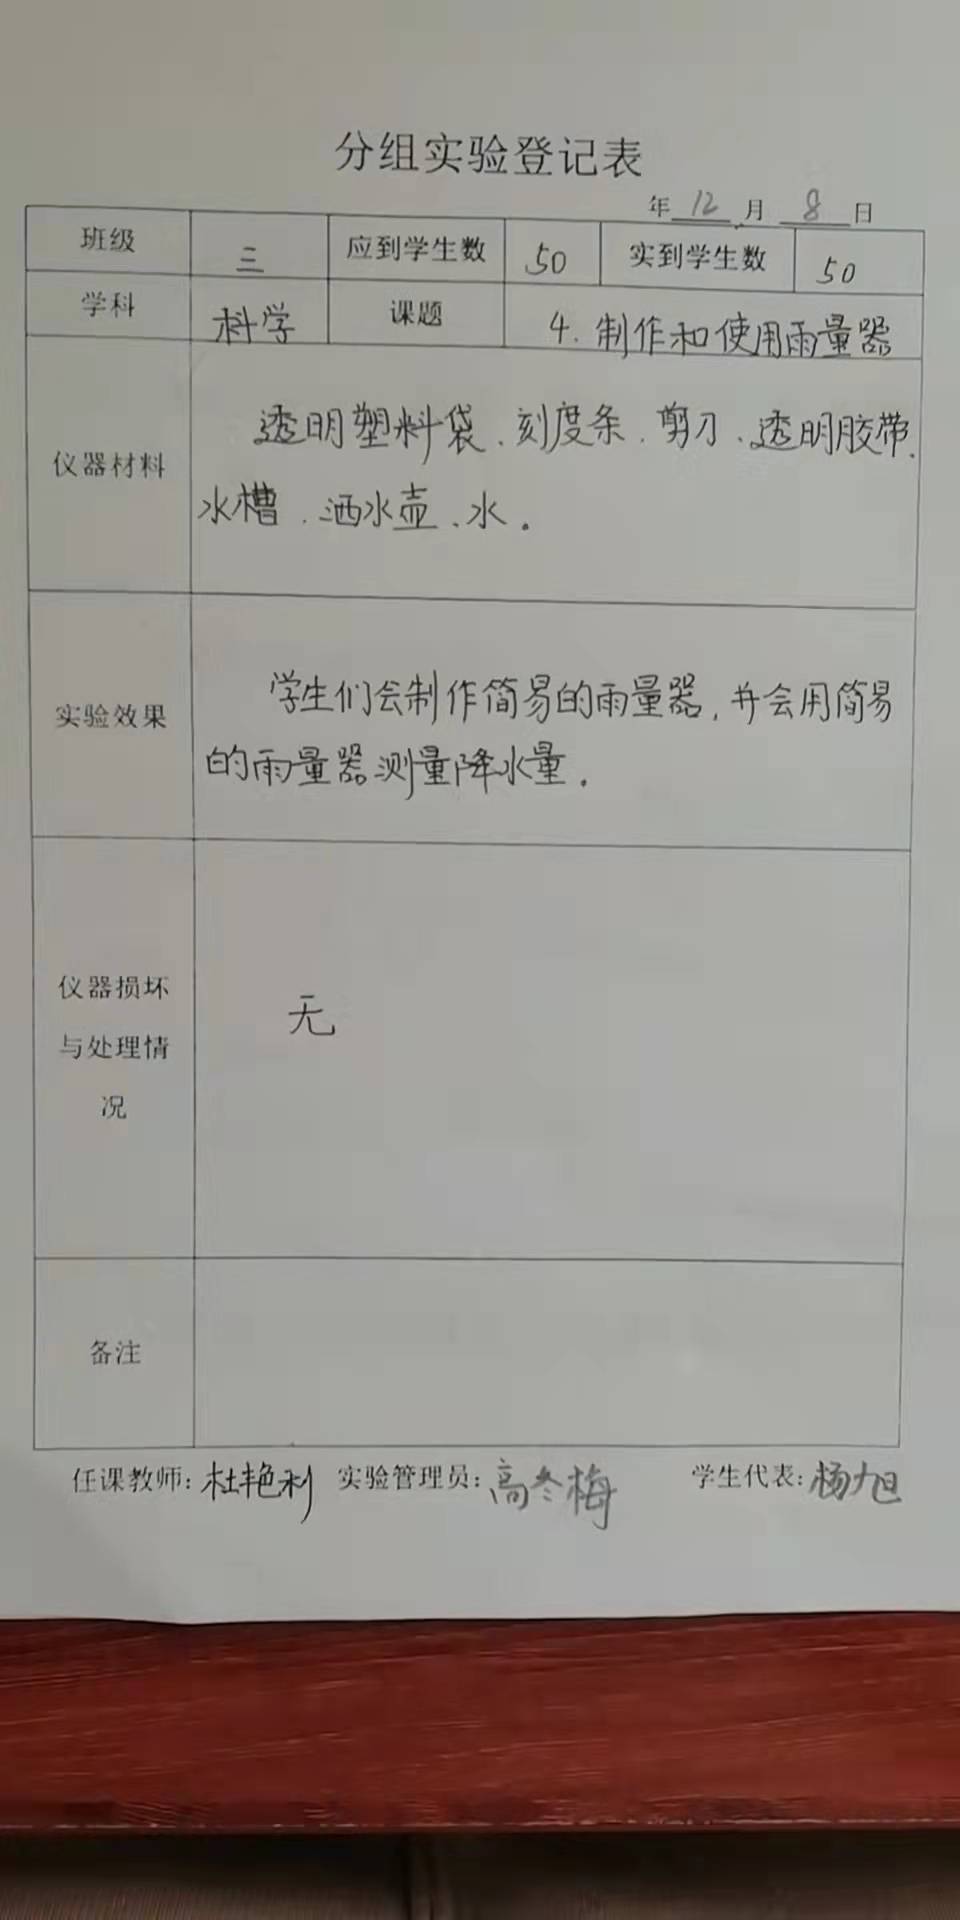 分组实验登记表
年 12 月 8 日
班级 三 应到学生数 50 实到学生数 50
学科 科学 课题 4.制作和使用雨量器
仪器材料
透明塑料袋、刻度条、剪刀、透明胶带、
水槽、洒水壶、水。
实验效果
学生们会制作简易的雨量器,并会用简易
的雨量器测量降水量。
仪器损坏
与处理情
况
无
备注
任课教师:杜艳利 实验管理员:高冬梅 学生代表:杨旭